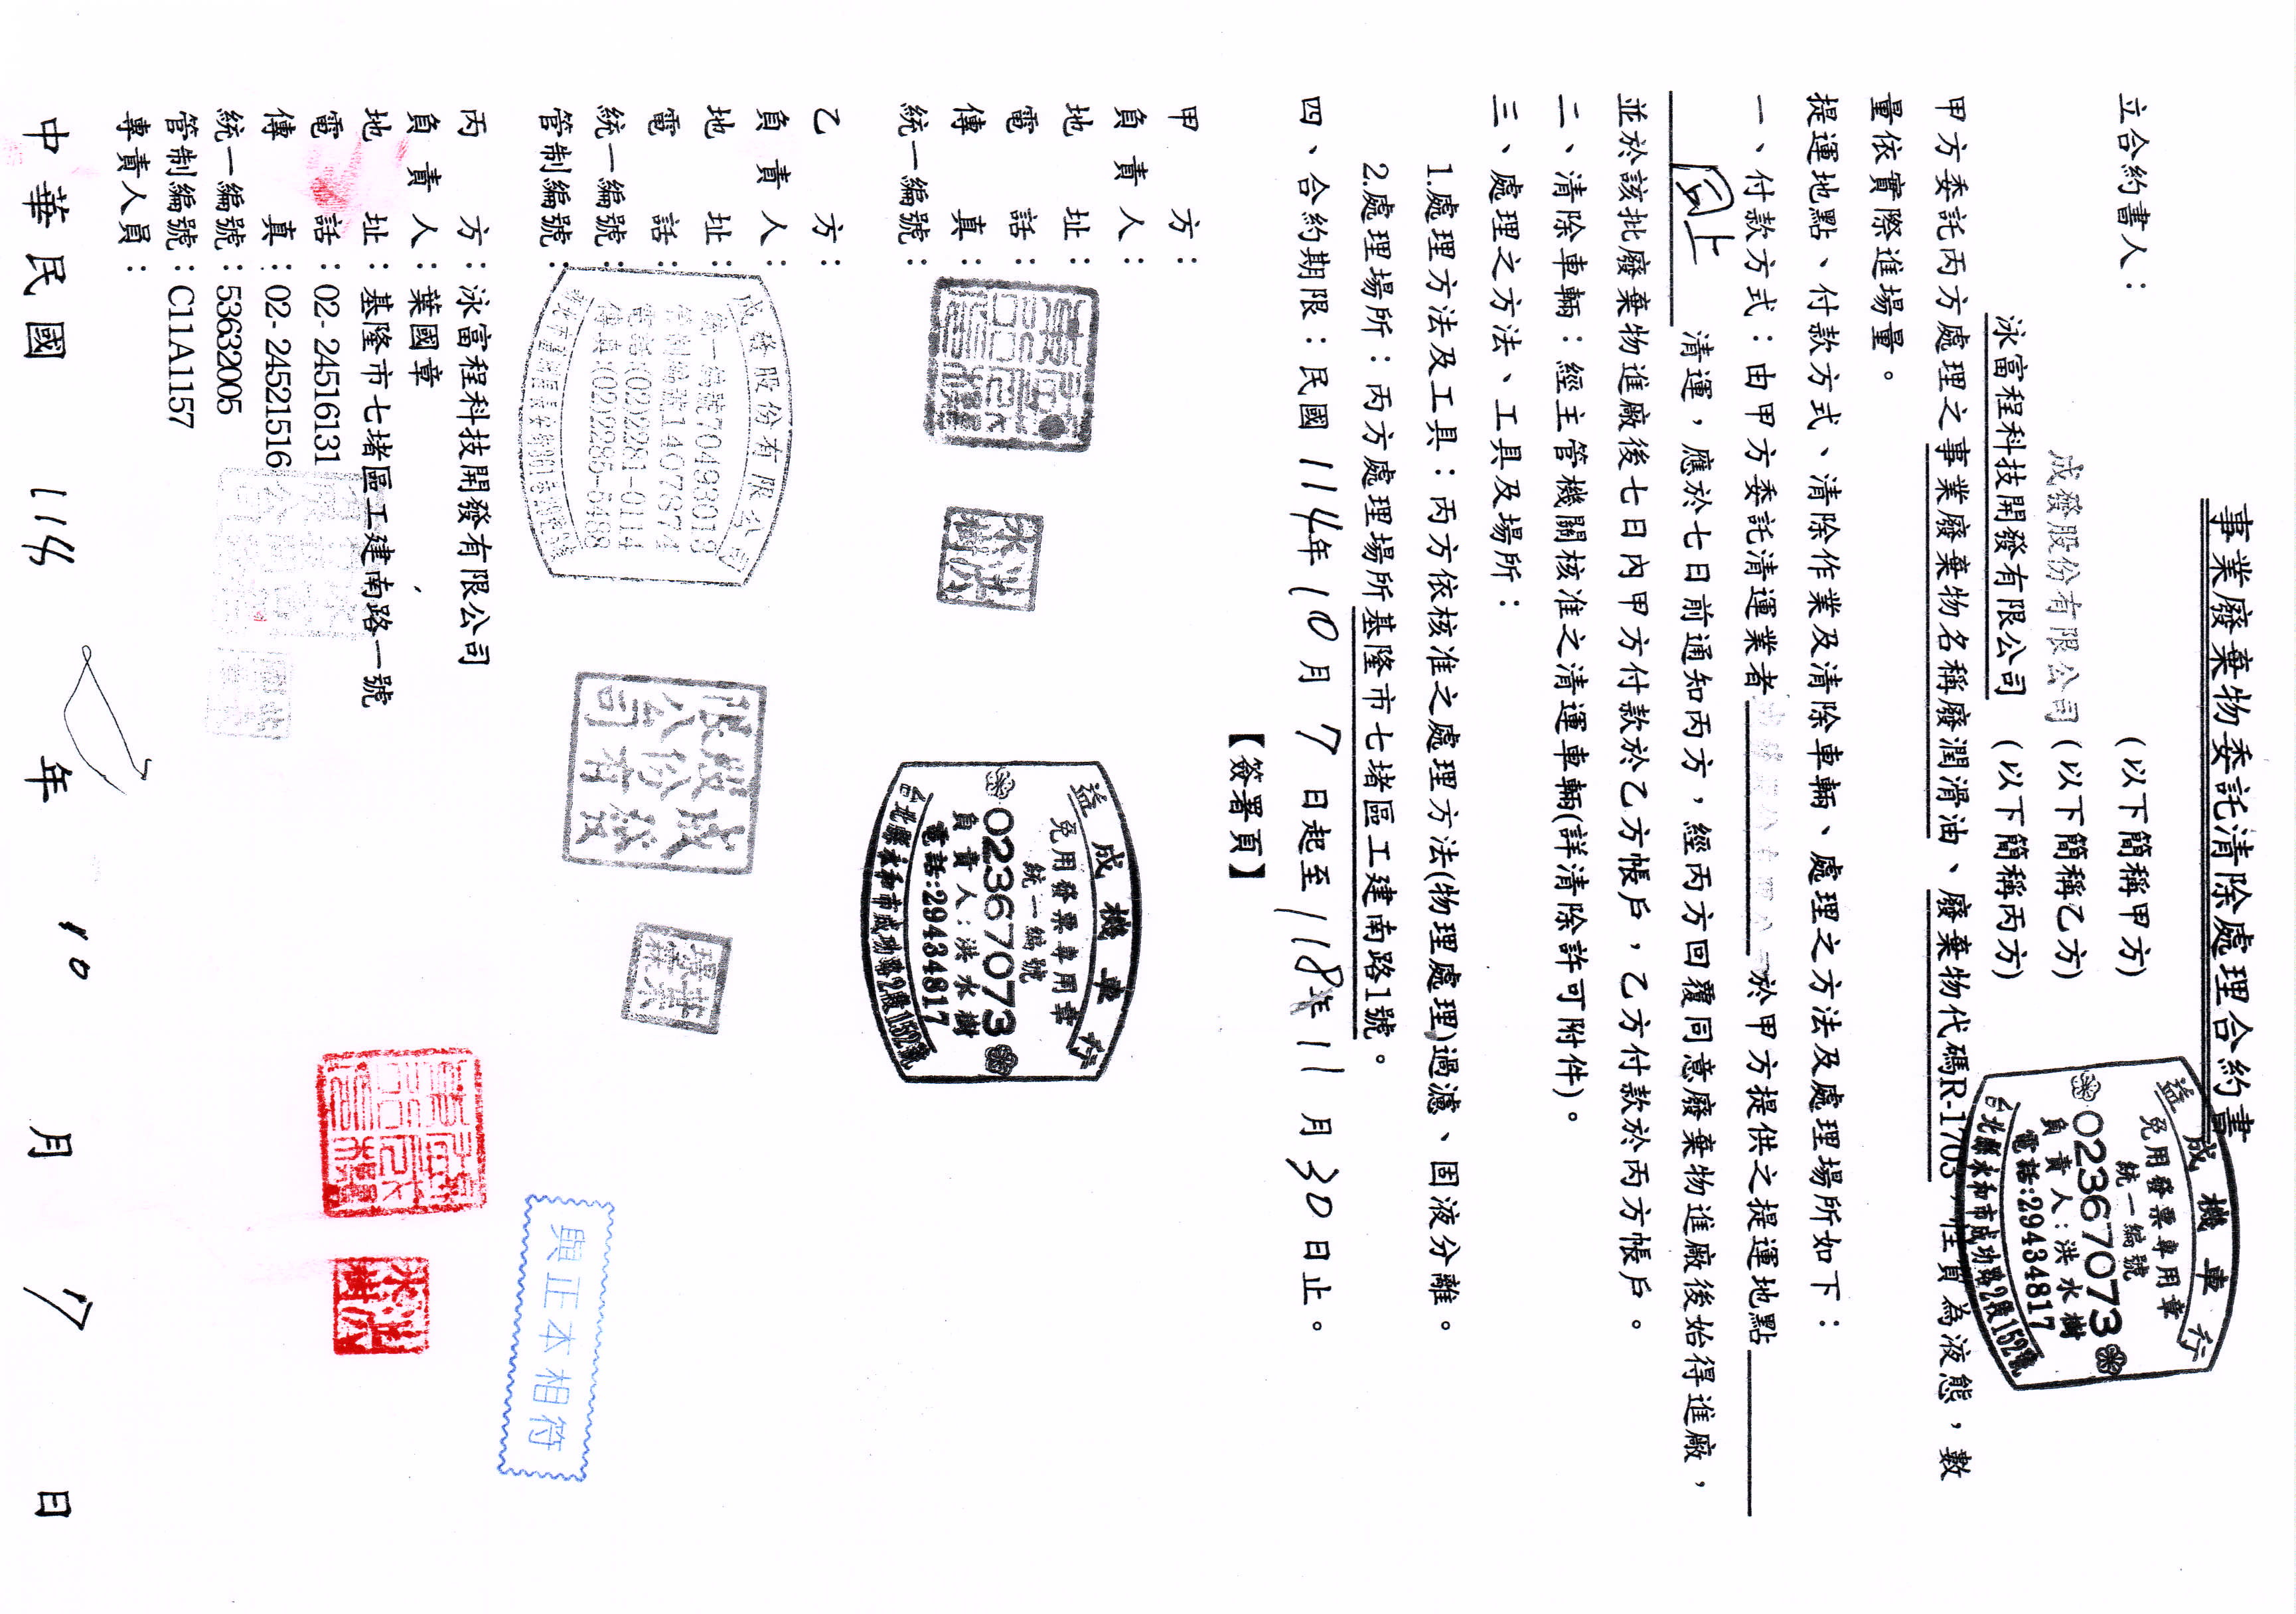 事業廢棄物委託清除處理合約書
立合約書人：
(以下簡稱甲方)
益成機車行
免用發票專用章
統一編號
02367073
負責人：洪水樹
電話:29434817
台北縣永和市成功路2段152號
成發股份有限公司 (以下簡稱乙方)
泳富程科技開發有限公司 (以下簡稱丙方)
甲方委託丙方處理之事業廢棄物名稱廢潤滑油、廢棄物代碼R-1703，性質為液態，數
量依實際進場量。
提運地點、付款方式、清除作業及清除車輛、處理之方法及處理場所如下：
一、付款方式：由甲方委託清運業者 於甲方提供之提運地點
同上 清運，應於七日前通知丙方，經丙方回覆同意廢棄物進廠後始得進廠，
並於該批廢棄物進廠後七日內甲方付款於乙方帳戶，乙方付款於丙方帳戶。
二、清除車輛：經主管機關核准之清運車輛(詳清除許可附件)。
三、處理之方法、工具及場所：
1.處理方法及工具：丙方依核准之處理方法(物理處理)過濾、固液分離。
2.處理場所：丙方處理場所基隆市七堵區工建南路1號。
四、合約期限：民國114年10月7日起至118年11月30日止。
【簽署頁】
甲方：
負責人：
地址：
電話：
傳真：
統一編號：
益成機車行
免用發票專用章
統一編號
02367073
負責人：洪水樹
電話:29434817
台北縣永和市成功路2段152號
乙方：
負責人：
地址：
電話：
統一編號：
管制編號：
成發股份有限公司
統一編號70493019
管制編號:F1407874
電話:(02)2281-0114
傳真:(02)2285-5488
丙方：泳富程科技開發有限公司
負責人：葉國章
地址：基隆市七堵區工建南路一號
電話：02-24516131
傳真：02-24521516
統一編號：53632005
管制編號：C11A1157
專責人員：
與正本相符
中華民國 114 年 10 月 7 日